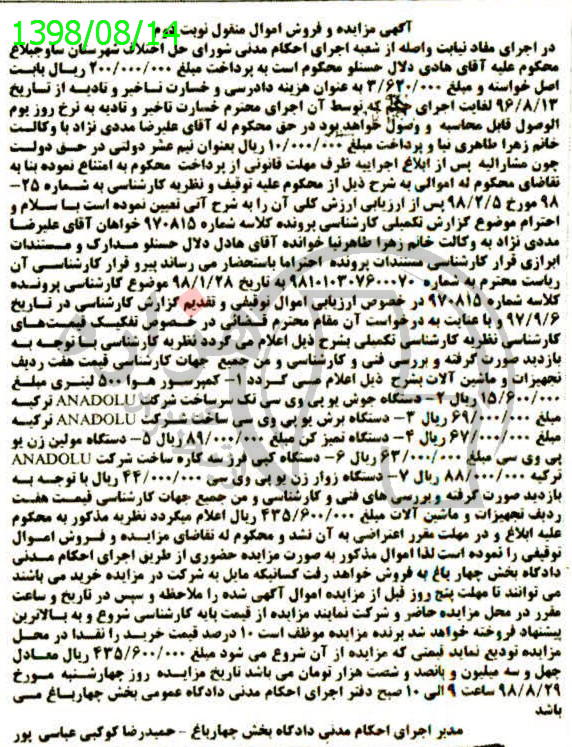 1398/08/14
آگهی مزایده و فروش اموال منقول نوبت دوم
در اجرای مفاد نیابت واصله از شعبه اجرای احکام مدنی شورای حل اختلاف شهرستان ساوجبلاغ
محکوم علیه آقای هادی دلال حسنلو محکوم است به پرداخت مبلغ ۲۰۰/۰۰۰/۰۰۰ ریال بابت
اصل خواسته و مبلغ ۳/۶۲۰/۰۰۰ به عنوان هزینه دادرسی و خسارت تاخیر و تادیه از تاریخ
۹۶/۸/۱۳ لغایت اجرای حکم که توسط آن اجرای محترم خسارت تاخیر و تادیه به نرخ روز یوم
الوصول قابل محاسبه و وصول خواهد بود در حق محکوم له آقای علیرضا مددی نژاد با وکالت
خانم زهرا طاهری نیا و پرداخت مبلغ ۱۰/۰۰۰/۰۰۰ ریال بعنوان نیم عشر دولتی در حق دولت
چون مشارالیه پس از ابلاغ اجراییه ظرف مهلت قانونی از پرداخت محکوم به امتناع نموده بنا به
تقاضای محکوم له اموالی به شرح ذیل از محکوم علیه توقیف و نظریه کارشناسی به شماره ۲۵-
۹۸ مورخ ۹۸/۲/۵ پس از ارزیابی ارزش کلی آن را به شرح آتی تعیین نموده است با سلام و
احترام موضوع گزارش تکمیلی کارشناسی پرونده کلاسه شماره ۹۷۰۸۱۵ خواهان آقای علیرضا
مددی نژاد به وکالت خانم زهرا طاهرنیا خوانده آقای هادل دلال حسنلو مدارک و مستندات
ابرازی قرار کارشناسی مستندات پرونده احتراما باستحضار می رساند پیرو قرار کارشناسی آن
ریاست محترم به شماره ۹۸۱۰۱۰۳۰۷۶۰۰۰۷۰ به تاریخ ۹۸/۱/۲۸ موضوع کارشناسی پرونده
کلاسه شماره ۹۷۰۸۱۵ در خصوص ارزیابی اموال توقیفی و تقدیم گزارش کارشناسی در تاریخ
۹۷/۹/۶ و با عنایت به درخواست آن مقام محترم قضائی در خصوص تفکیک قیمت‌های
کارشناسی نظریه کارشناسی تکمیلی بشرح ذیل اعلام می گردد نظریه کارشناسی با توجه به
بازدید صورت گرفته و بررسی فنی و کارشناسی و من جمیع جهات کارشناسی قیمت هفت ردیف
تجهیزات و ماشین آلات بشرح ذیل اعلام می گردد ۱- کمپرسور هوا ۵۰۰ لیتری مبلغ
۱۵/۶۰۰/۰۰۰ ریال ۲- دستگاه جوش یو پی وی سی تک سرساخت شرکت ANADOLU ترکیه
مبلغ ۶۹/۰۰۰/۰۰۰ ریال ۳- دستگاه برش یو پی وی سی ساخت شرکت ANADOLU ترکیه
مبلغ ۶۷/۰۰۰/۰۰۰ ریال ۴- دستگاه تمیز کن مبلغ ۸۹/۰۰۰/۰۰۰ ریال ۵- دستگاه مولین زن یو
پی وی سی مبلغ ۶۳/۰۰۰/۰۰۰ ریال ۶- دستگاه کپی فرز سه کاره ساخت شرکت ANADOLU
ترکیه ۸۸/۰۰۰/۰۰۰ ریال ۷- دستگاه زوار زن یو پی وی سی ۴۴/۰۰۰/۰۰۰ ریال با توجه به
بازدید صورت گرفته و بررسی های فنی و کارشناسی و من جمیع جهات کارشناسی قیمت هفت
ردیف تجهیزات و ماشین آلات مبلغ ۴۳۵/۶۰۰/۰۰۰ ریال اعلام میگردد نظریه مذکور به محکوم
علیه ابلاغ و در مهلت مقرر اعتراضی به آن نشد و محکوم له تقاضای مزایده و فروش اموال
توقیفی را نموده است لذا اموال مذکور به صورت مزایده حضوری از طریق اجرای احکام مدنی
دادگاه بخش چهار باغ به فروش خواهد رفت کسانیکه مایل به شرکت در مزایده خرید می باشند
می توانند تا مهلت پنج روز قبل از مزایده اموال آگهی شده را ملاحظه و سپس در تاریخ و ساعت
مقرر در محل مزایده حاضر و شرکت نمایند مزایده از قیمت پایه کارشناسی شروع و به بالاترین
پیشنهاد فروخته خواهد شد برنده مزایده موظف است ۱۰ درصد قیمت خرید را نقدا در محل
مزایده تودیع نماید قیمتی که مزایده از آن شروع می شود مبلغ ۴۳۵/۶۰۰/۰۰۰ ریال معادل
چهل و سه میلیون و پانصد و شصت هزار تومان می باشد تاریخ مزایده روز چهارشنبه مورخ
۹۸/۸/۲۹ ساعت ۹ الی ۱۰ صبح دفتر اجرای احکام مدنی دادگاه عمومی بخش چهارباغ می
باشد
مدیر اجرای احکام مدنی دادگاه بخش چهارباغ - حمیدرضا کوکبی عباسی پور